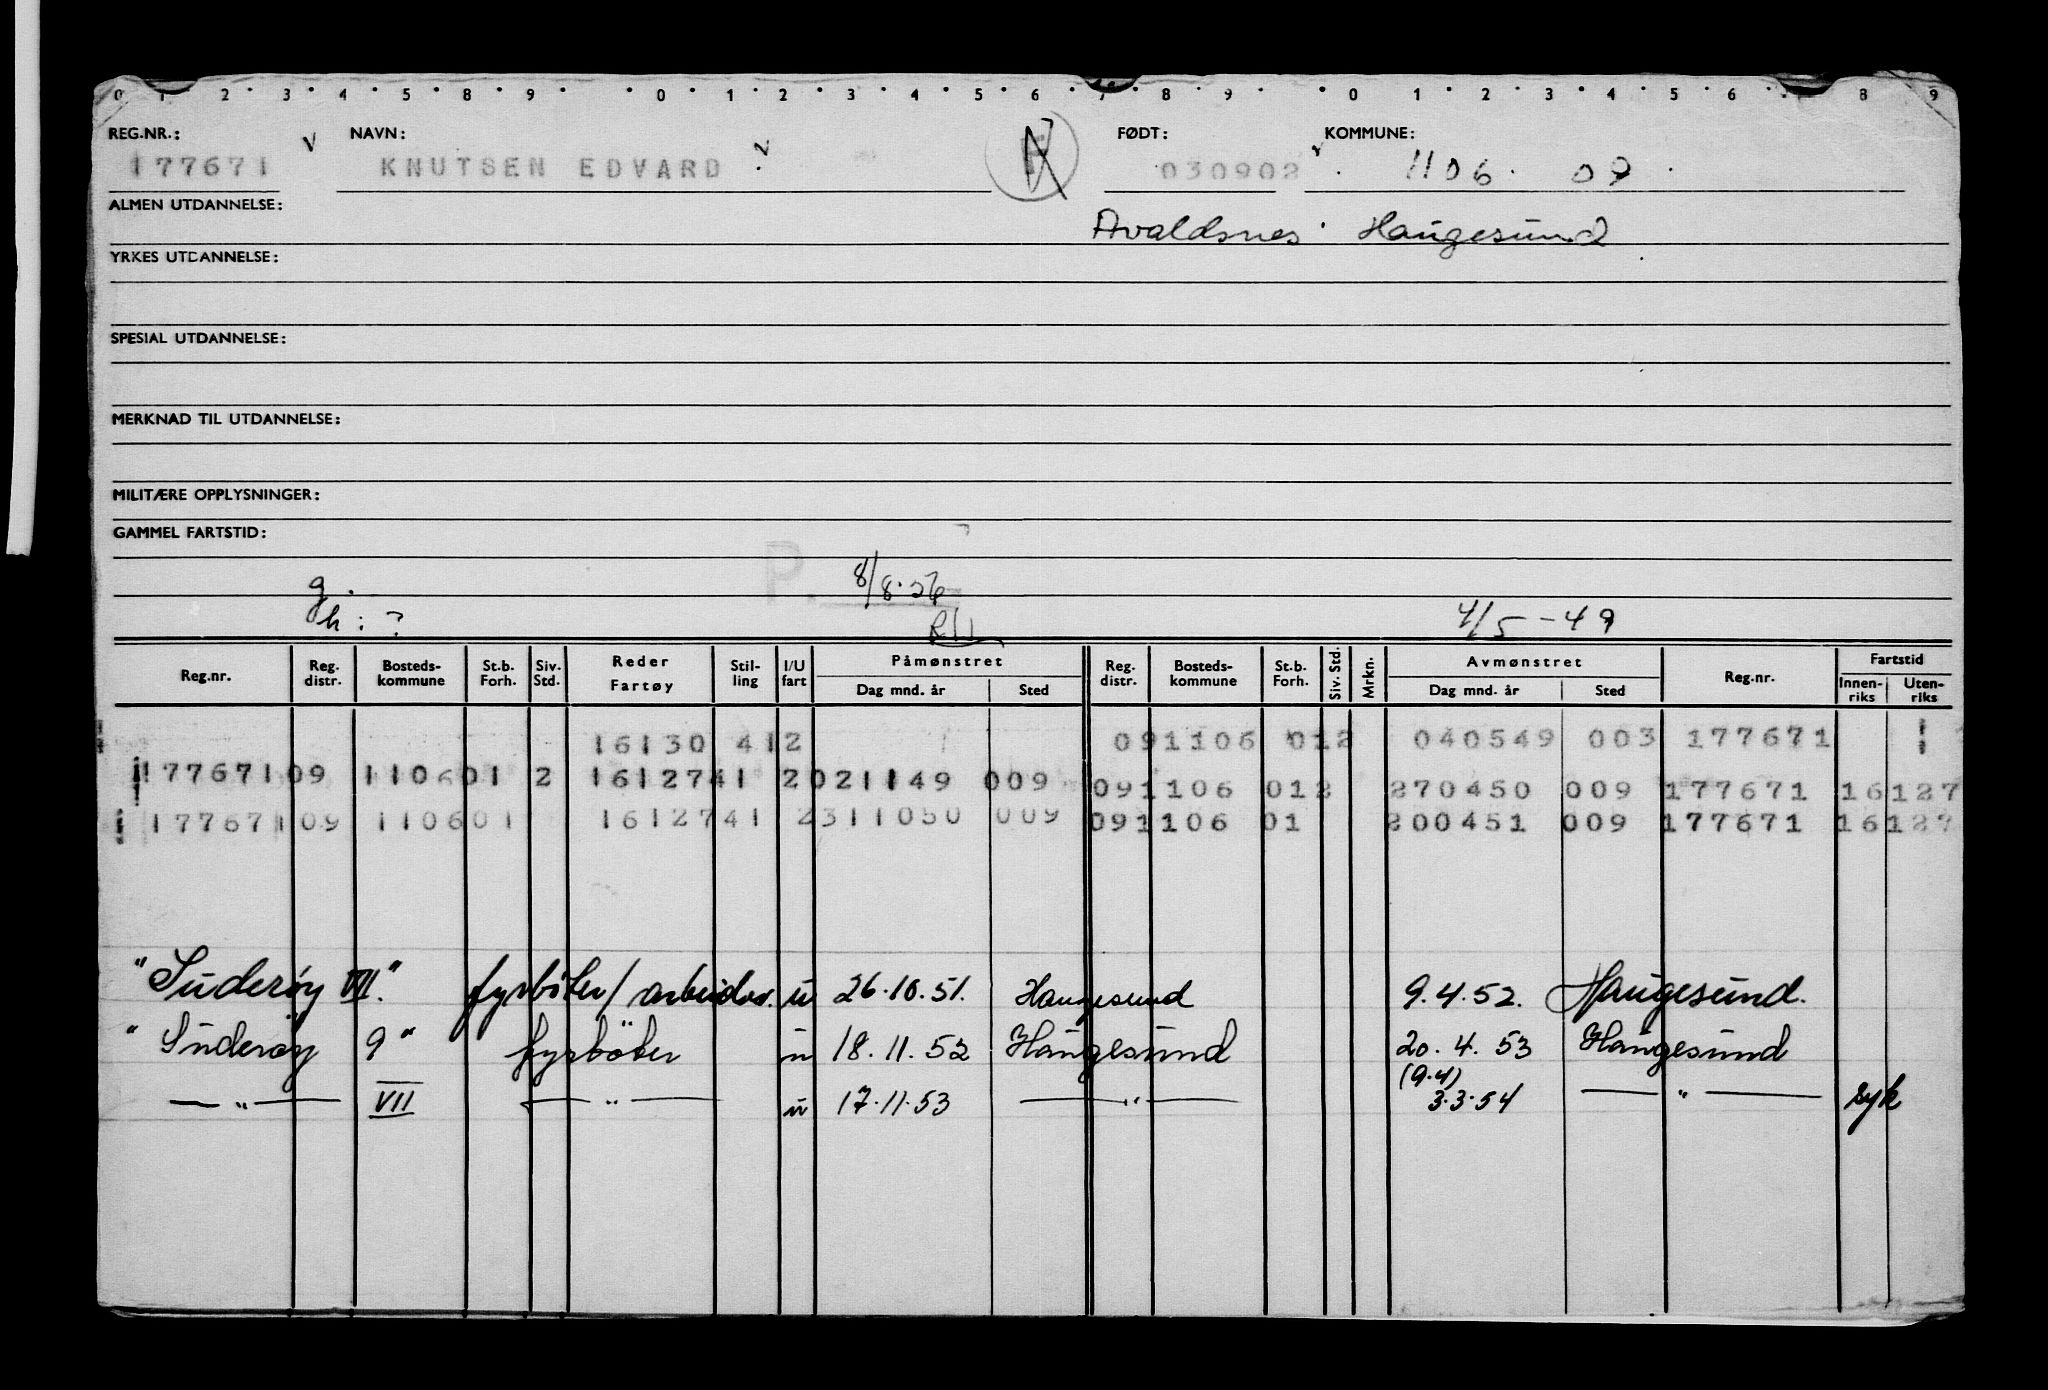 0 1 2 3 4 5 8 9 0 1 2 3 4 5 6 7 8 9 0 1 2 3 4 5 6 7 8 9
REG.NR.: NAVN: FØDT: KOMMUNE:
177671 KNUTSEN EDVARD 030902 1106 09
ALMEN UTDANNELSE: Avaldsnes Haugesund
YRKES UTDANNELSE:
SPESIAL UTDANNELSE:
MERKNAD TIL UTDANNELSE:
MILITÆRE OPPLYSNINGER:
GAMMEL FARTSTID:
P. 8/8.56
g.
h : ? 4/5-49
Reg.nr. Reg. distr. Bosteds-kommune St.b. Forh. Siv. Std. Reder Fartøy Stil-ling I/U fart Påmønstret Dag mnd. år Sted Reg. distr. Bosteds-kommune St.b. Forh. Siv. Std. Mrkn. Avmønstret Dag mnd. år Sted Reg.nr. Fartstid Innen-riks Uten-riks
16130 412 091106 012 040549 003 177671
177671 09 110601 2 1612741 2021149 009 091106 012 270450 009 177671 16127
177671 09 110601 1612741 2311050 009 091106 01 200451 009 177671 16127
"Suderøy VII." fyrbøter/arbeider. u 26.10.51. Haugesund 9.4.52. Haugesund.
"Suderøy 9" fyrbøter u 18.11.52 Haugesund 20.4.53 Haugesund
(9.4)
— " — VII — " — u 17.11.53 — " — 3.3.54 — " — syk